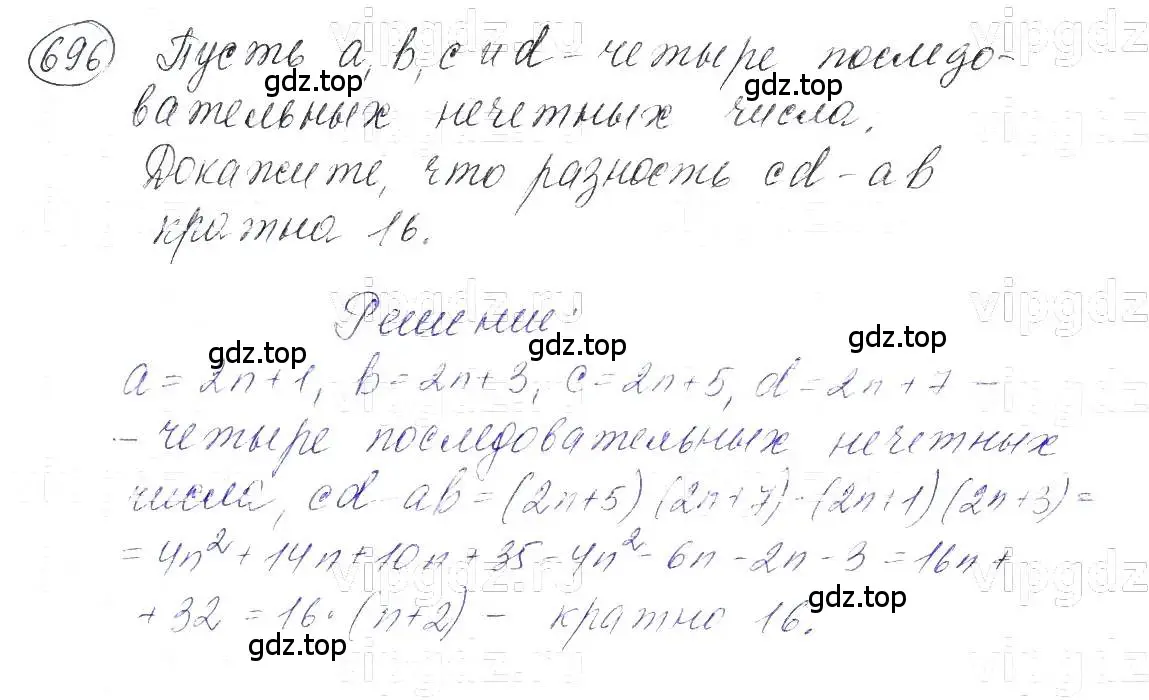 696 Пусть a, b, c и d - четыре последо-
вательных нечетных числа.
Докажите, что разность cd - ab
кратна 16.
Решение:
a = 2n+1, b = 2n+3, c = 2n+5, d = 2n+7 -
- четыре последовательных нечетных
числа, cd - ab = (2n+5)(2n+7) - (2n+1)(2n+3) =
= 4n² + 14n + 10n + 35 - 4n² - 6n - 2n - 3 = 16n +
+ 32 = 16 · (n+2) - кратно 16.
gdz.top
gdz.top
gdz.top
gdz.top
gdz.top
gdz.top
gdz.top
gdz.top
vipgdz.ru
vipgdz.ru
vipgdz.ru
vipgdz.ru